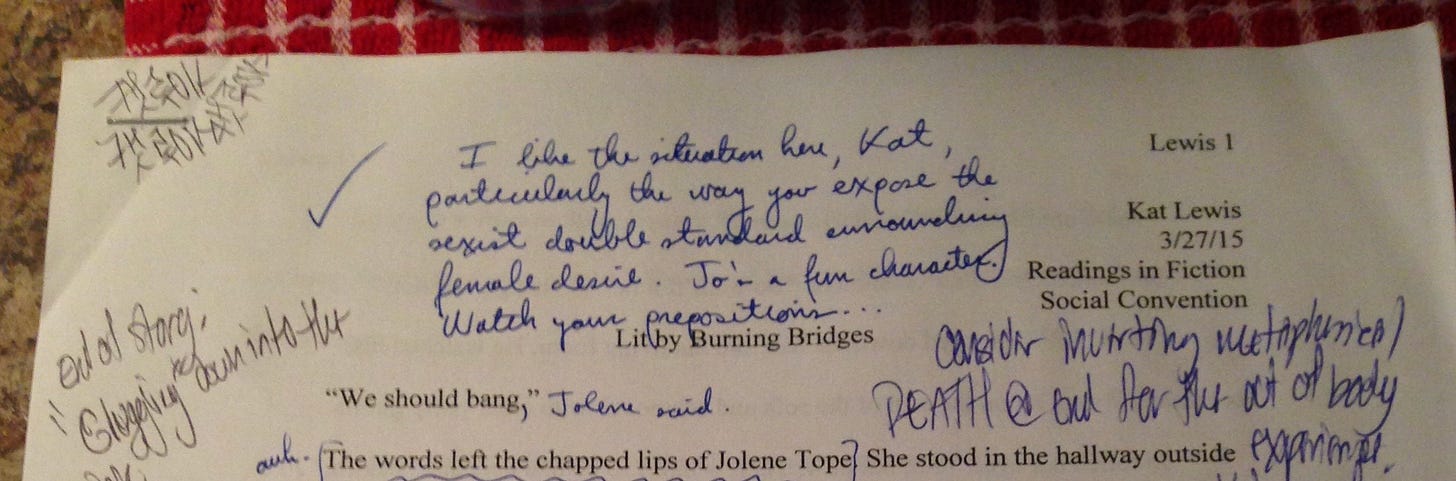 I like the situation here, Kat,
particularly the way you expose the
sexist double standard surrounding
female desire. Jo's a fun character.
Watch your prepositions...
Lewis 1
Kat Lewis
3/27/15
Readings in Fiction
Social Convention
Lit by Burning Bridges
Consider inverting metaphysical
DEATH @ end for the out of body
experience.
end of story:
"Glugging down into the
"We should bang," Jolene said.
awk. The words left the chapped lips of Jolene Tope. She stood in the hallway outside